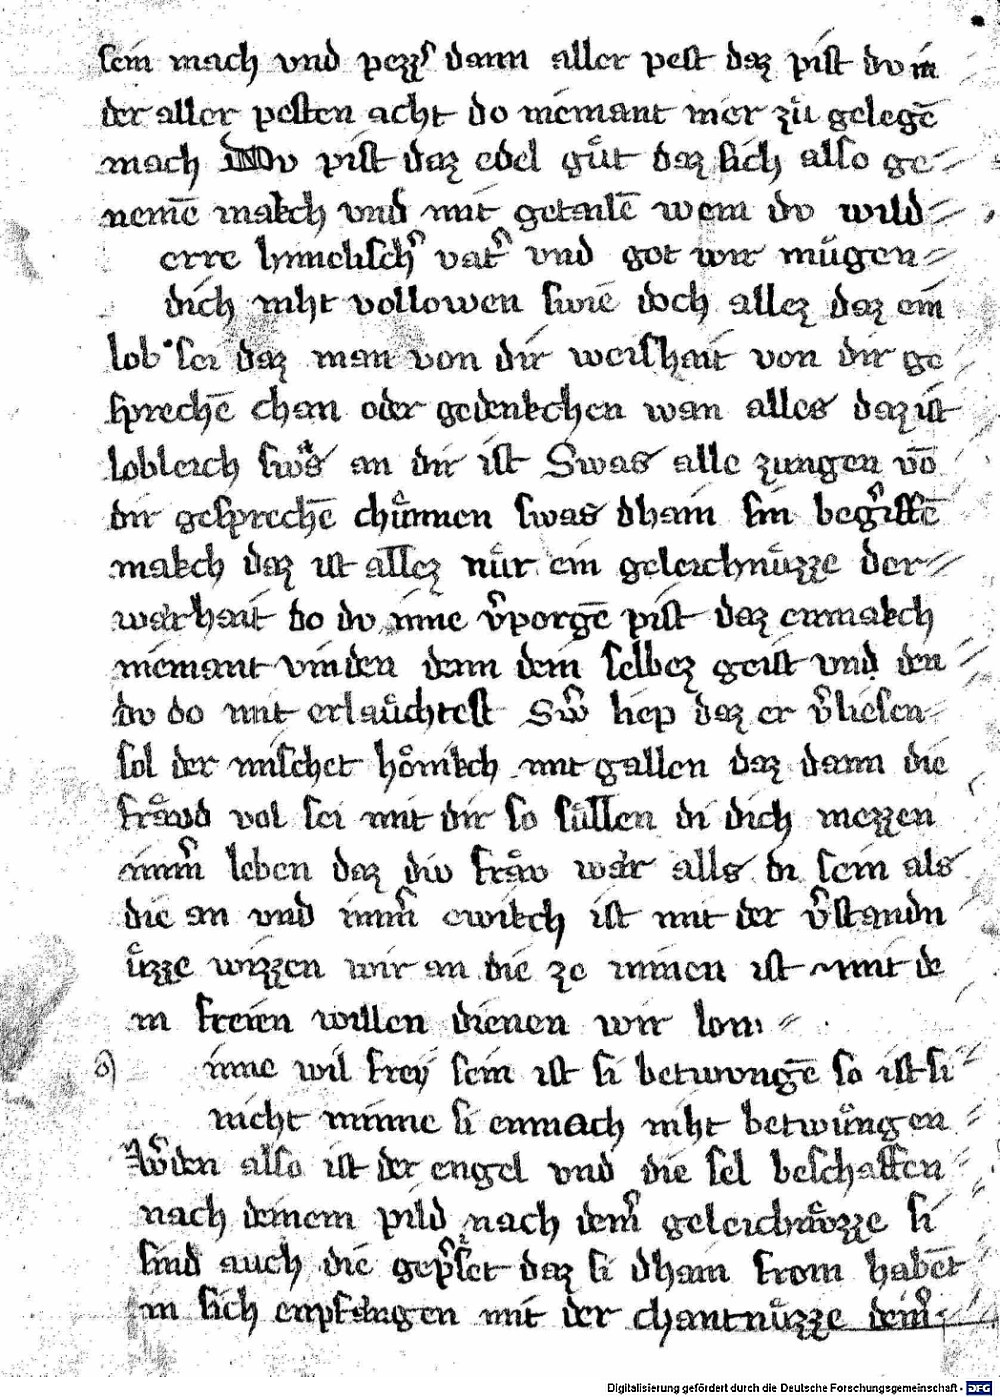 sein mach vnd pezzˢ dann aller pest daz pist dv in
der aller pesten acht do niemant mer zů gelegē
mach Dv pist daz edel gůt daz sich also ge⸗
nemē makch vnd mit getailē wem dv wild⸗
erre himelischˢ vatˢ vnd got wir mügen⸗
dich niht vollowen swie doch allez daz ein
lob sei daz man von dir weishait von dir ge
sprechē chan oder gedenkchen wan alles daz ist
lobleich swas an dir ist Swas alle zungen vō
dir gesprechē chůnnen swas dhain sin begˢiffē
makch daz ist allez nůr ein geleichnůzze der⸗
warhait do dv inne vˢporgē pist daz enmakch
niemant vinden denn dein selbez geist vnd den
dv do mit erlaůchtest Swˢ hiep daz er vˢliesen⸗
sol der mischet hönikch mit gallen daz dann die
fraͤvd vol sei mit dir so sůllen di dich mezzen
immˢ leben daz div fraͤv waͤr alls di sein als
die an vnd immˢ ewikch ist mit der vˢstandn
ůzze wizzen wir an die ze minnen ist mit de
m freien willen dienen wir lon ⸗
inne wil frey sein ist si betwungē so ist si
nicht minne si enmach niht betwůngen
wˢden also ist der engel vnd die sel beschaffen
nach deinem pild nach deinˢ geleichnůzze si
sind auch die gepˢset daz si dhain from habēt
in sich enpfangen mit der chantnůzze deinˢ
Digitalisierung gefördert durch die Deutsche Forschungsgemeinschaft - DFG